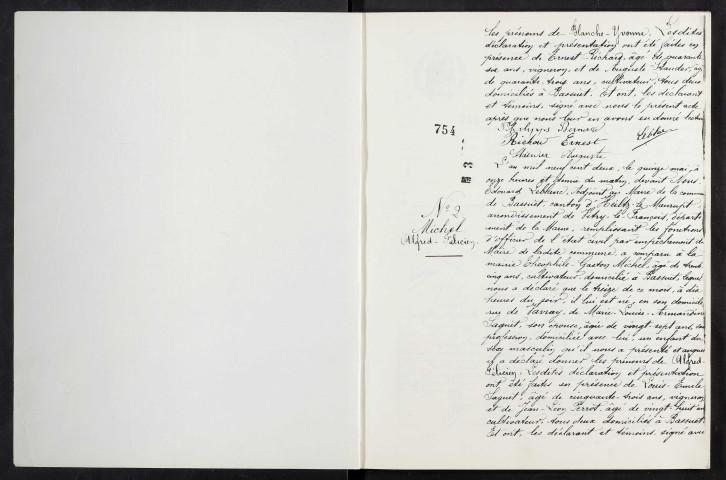 les prénoms de Blanche-Yvonne. Lesdites
déclaration et présentation ont été faites en
présence de Ernest Richard, âgé de quarante
six ans, vigneron, et de Auguste
de quarante-trois ans, cultivateur, tous deux
domiciliés à Bassuet. Et ont, les déclarant
et témoins, signé avec nous le présent acte
après que nous leur en avons eu donné lecture
Ernest
Auguste
754
L'an mil neuf cent deux, le quinze mai, à
onze heures et demie du matin, devant Nous
Edouard Leblanc, Adjoint au Maire de la commune
de Bassuet, canton d'Heiltz-le-Maurupt
arrondissement de Vitry-le-François, départ
ement de la Marne, remplissant les fonctions
d'officier de l'état civil par empêchement du
Maire de ladite commune, a comparu à la
mairie Théophile-Gaston Michel, âgé de trente
cinq ans, cultivateur, domicilié à Bassuet, lequel
nous a déclaré que le treize de ce mois, à dix
heures du soir, il lui est né, en son domicile
rue de Vavray, de Marie-Louise-Armandine
Jaquet, son épouse, âgée de vingt sept ans, sans
profession, domiciliée avec lui, un enfant du
sexe masculin qu'il nous a présenté et auquel
il a déclaré donner les prénoms de Alfred-
Félicien. Lesdites déclaration et présentation
ont été faites en présence de Louis-Emile
Jaquet, âgé de cinquante-trois ans, vigneron
et de Jean-Léon Perrot, âgé de vingt-huit ans
cultivateur, tous deux domiciliés à Bassuet
Et ont, les déclarant et témoins, signé avec
N° 2
Michel
Alfred-Félicien